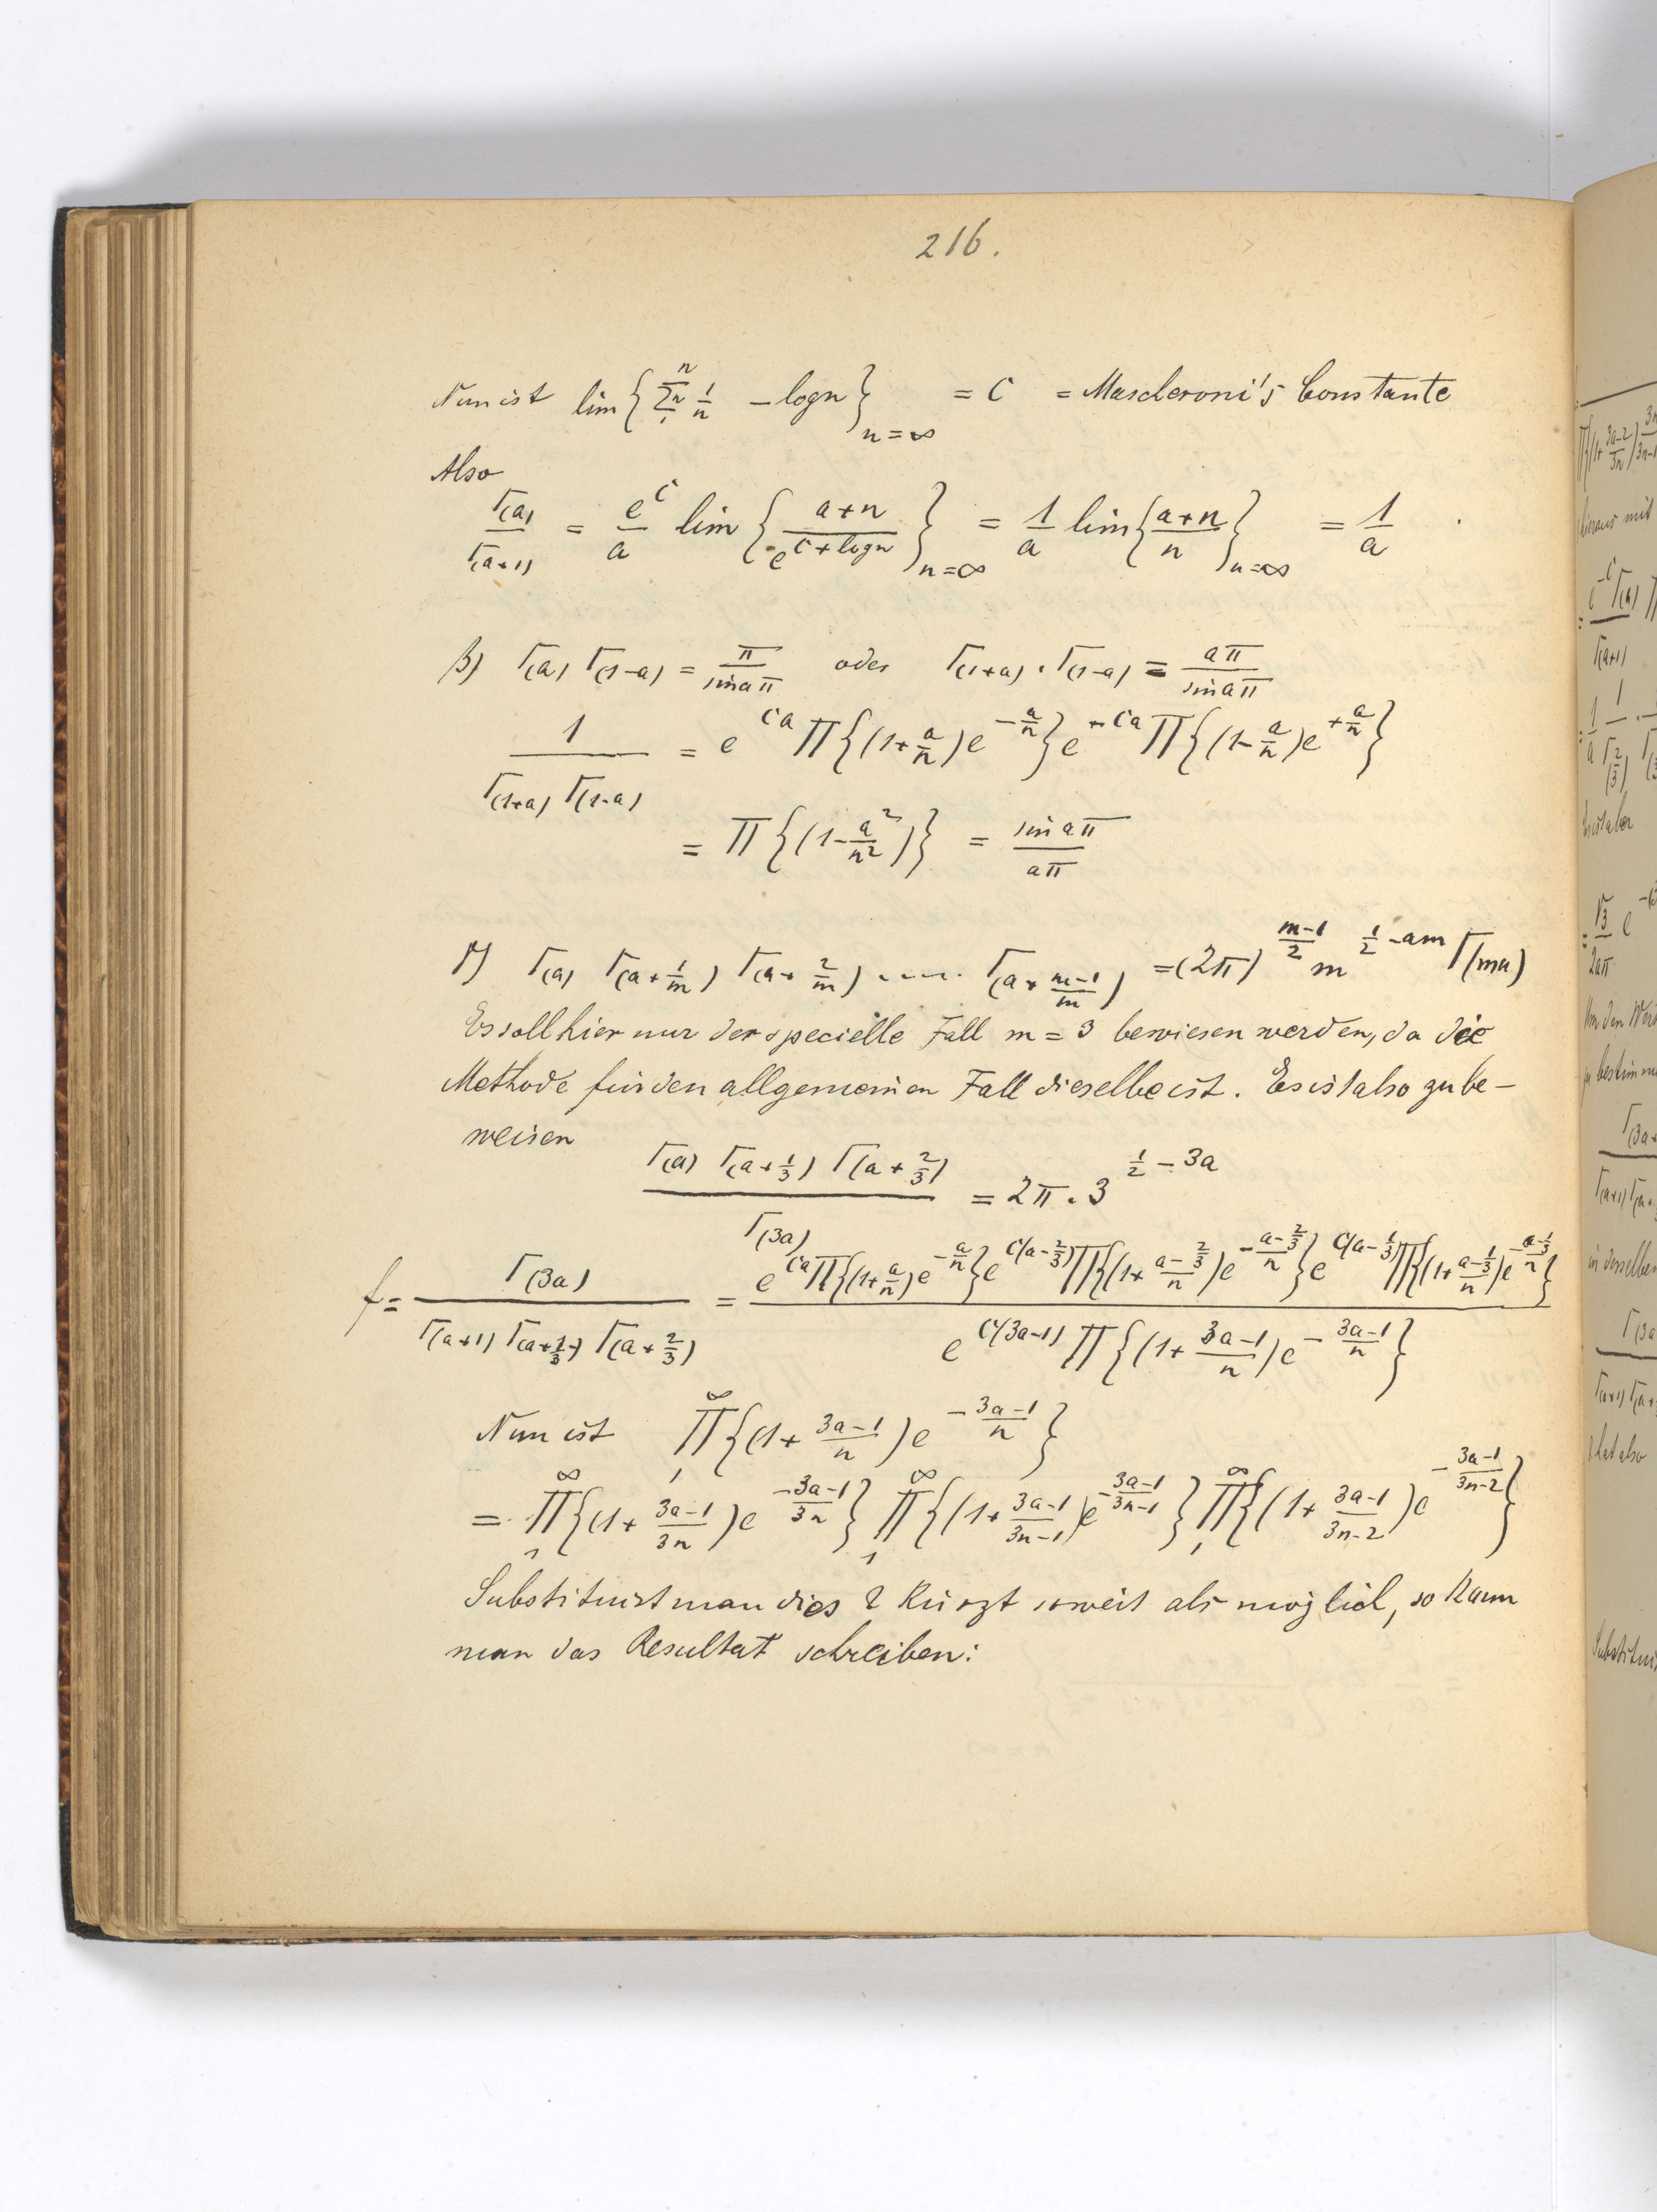 216.
Nun ist lim{∑₁ⁿ 1/n − log n}ₙ₌∞ = C = Mascheroni's Constante
Also
Γ(a)/Γ(a+1) = e^C/a lim{(a+n)/e^(C+log n)}ₙ₌∞ = 1/a lim{(a+n)/n}ₙ₌∞ = 1/a .
β) Γ(a) Γ(1−a) = π/sin aπ oder Γ(1+a) . Γ(1−a) = aπ/sin aπ
1/(Γ(1+a) Γ(1−a)) = e^(Ca) Π{(1+a/n)e^(−a/n)} e^(−Ca) Π{(1−a/n)e^(+a/n)}
= Π{(1−a²/n²)} = sin aπ/aπ
γ) Γ(a) Γ(a+1/m) Γ(a+2/m) ..... Γ(a+(m−1)/m) = (2π)^((m−1)/2) m^(1/2−am) Γ(ma)
Es soll hier nur der specielle Fall m = 3 bewiesen werden, da die
Methode für den allgemeinen Fall dieselbe ist. Es ist also zu be-
weisen
Γ(a) Γ(a+1/3) Γ(a+2/3)/Γ(3a) = 2π . 3^(1/2−3a)
f = Γ(3a)/(Γ(a+1) Γ(a+1/3) Γ(a+2/3)) = e^(Ca) Π{(1+a/n)e^(−a/n)} e^(C(a−2/3)) Π{(1+(a−2/3)/n)e^(−(a−2/3)/n)} e^(C(a−1/3)) Π{(1+(a−1/3)/n)e^(−(a−1/3)/n)} / e^(C(3a−1)) Π{(1+(3a−1)/n)e^(−(3a−1)/n)}
Nun ist Π₁^∞{(1+(3a−1)/n)e^(−(3a−1)/n)}
= Π₁^∞{(1+(3a−1)/3n)e^(−(3a−1)/3n)} Π₁^∞{(1+(3a−1)/(3n−1))e^(−(3a−1)/(3n−1))} Π₁^∞{(1+(3a−1)/(3n−2))e^(−(3a−1)/(3n−2))}
Substituirt man dies & kürzt soweit als möglich, so kann
man das Resultat schreiben: